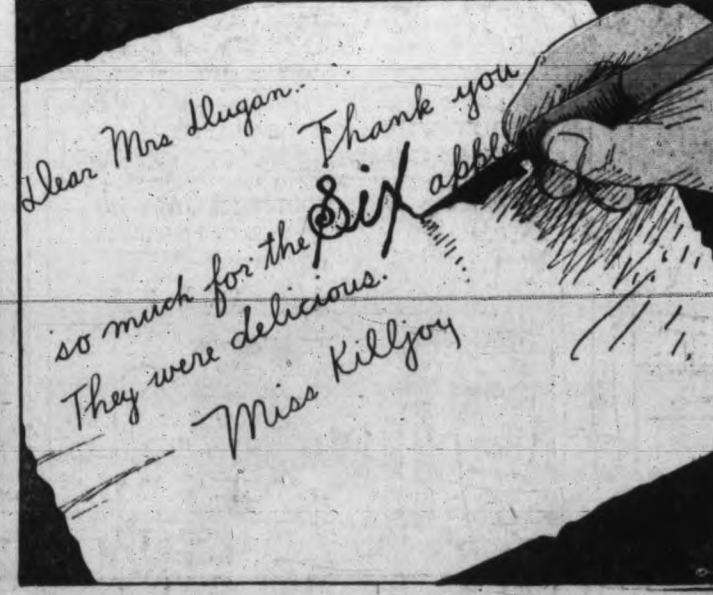 Dear Mrs Dugan.
Thank you
so much for the Six apple
They were delicious.
Miss Killjoy